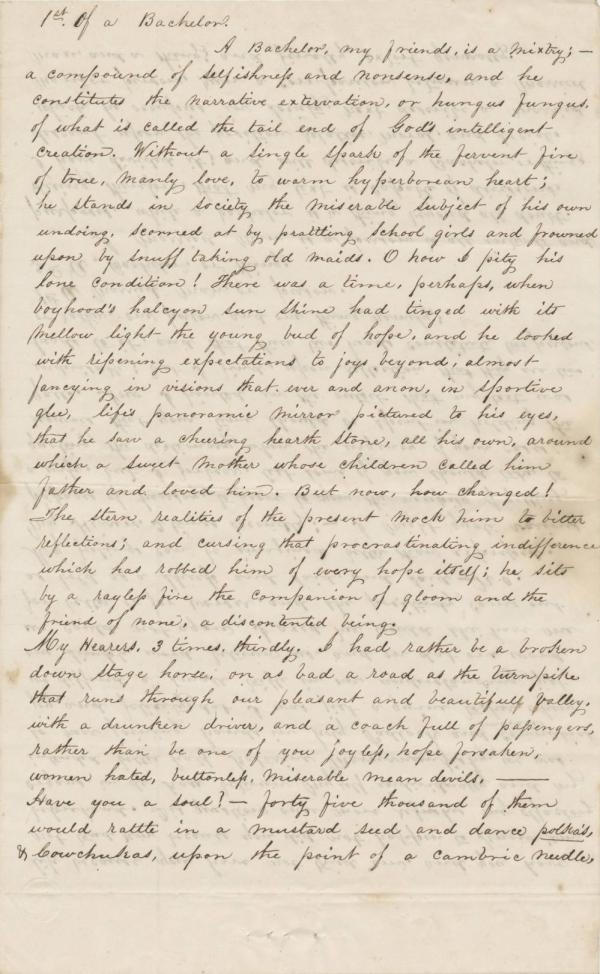 1st. Of a Bachelor.
A Bachelor, my friends, is a mixtry; —
a compound of selfishness and nonsense, and he
constitutes the narrative extervation, or hungus fungus,
of what is called the tail end of God's intelligent
creation. Without a single spark of the fervent fire
of true, manly love, to warm hyperborean heart;
he stands in society the miserable subject of his own
undoing, scorned at by prattling school girls and frowned
upon by snuff taking old maids. O how I pity his
lone condition! There was a time, perhaps, when
boyhood's halcyon sun shine had tinged with its
mellow light the young bud of hope, and he looked
with ripening expectations to joys beyond; almost
fancying in visions that ever and anon, in sportive
glee, life's panoramic mirror pictured to his eyes,
that he saw a cheering hearth stone, all his own, around
which a sweet mother whose children called him
father and loved him. But now, how changed!
The stern realities of the present mock him to bitter
reflections; and cursing that procrastinating indifference
which has robbed him of every hope itself; he sits
by a rayless fire the companion of gloom and the
friend of none, a discontented being.
My Hearers, 3 times, thirdly. I had rather be a broken
down stage horse, on as bad a road as the turnpike
that runs through our pleasant and beautifull valley,
with a drunken driver, and a coach full of passengers,
rather than be one of you joyless, hope forsaken,
women hated, buttonless, miserable mean devils. —
Have you a soul? — forty five thousand of them
would rattle in a mustard seed and dance polska's,
& Cowchukas, upon the point of a cambric needle,